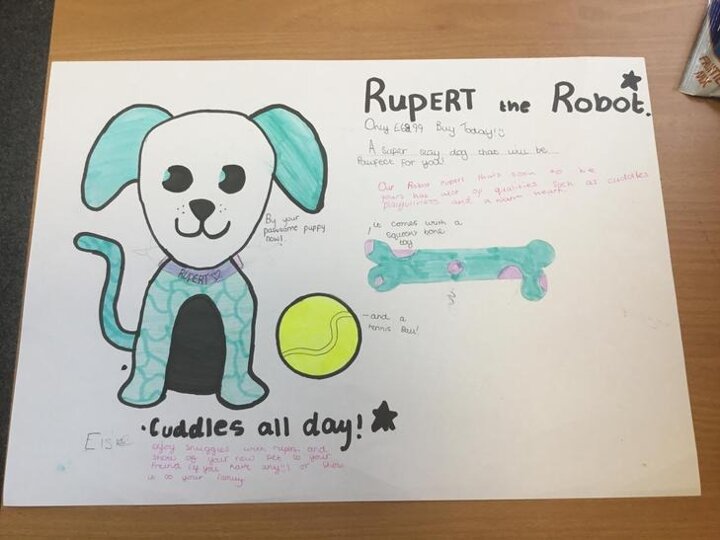 RUPERT the Robot.
Only £69.99 Buy Today!
A super slay dog that will be...
Pawfect for you!
Our Robot rupert that's soon to be
yours has alot of qualities such as cuddles
playfulness and a warm heart
By your
pawsome puppy
now!
it comes with a
squeaky bone
toy
RUPERT
-and a
tennis Ball!
•Cuddles all day!
enjoy snuggles with rupert and
show of your new pet to your
friend (if you have any!) or show
it to your family